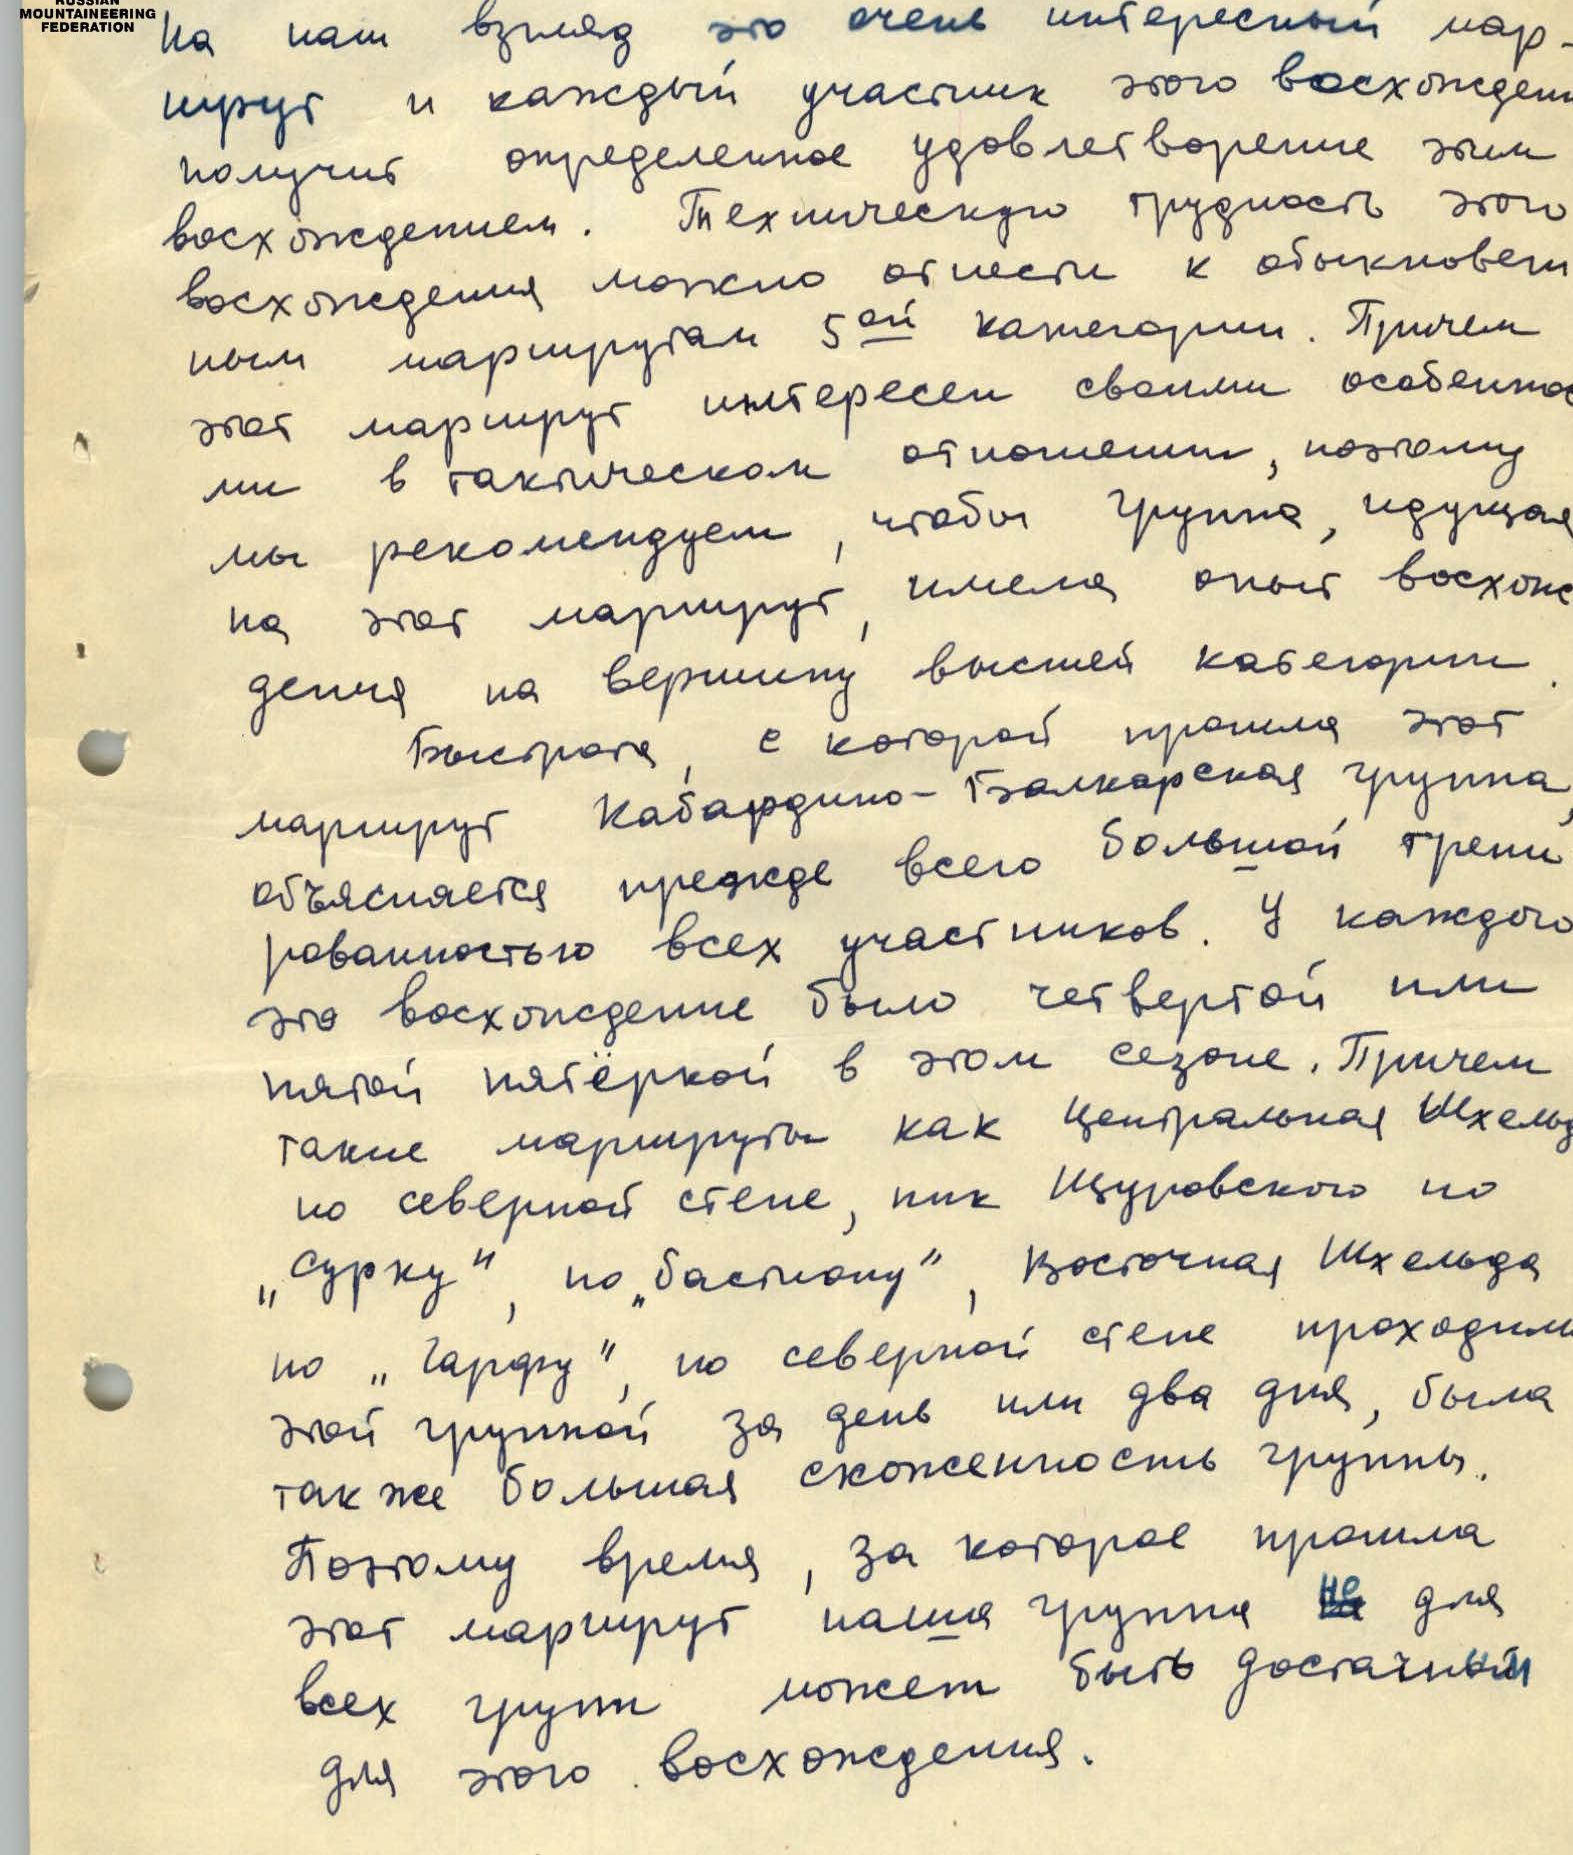 RUSSIAN
MOUNTAINEERING
FEDERATION
На наш взгляд это очень интересный мар-
шрут и каждый участник этого восхожден
получит определенное удовлетворение этим
восхождением. Техническую трудность этого
восхождения можно отнести к обыкновен
ным маршрутам 5ой категории. Причем
этот маршрут интересен своими особеннос
ми в тактическом отношении, поэтому
мы рекомендуем, чтобы группа, идущая
на этот маршрут, имела опыт восхож
дения на вершину высшей категории.
Быстрота, с которой прошла этот
маршрут Кабардино-Балкарская группа,
объясняется прежде всего большой трени
рованностью всех участников. У каждого
это восхождение было четвертой или
пятой пятёркой в этом сезоне. Причем
такие маршруты как Центральная Шхельд
по северной стене, пик Щуровского по
„Сурку", по „бастиону", Восточная Шхельда
по „Гарфу", по северной стене проходили
этой группой за день или два дня, была
так же большая схоженность группы.
Поэтому время, за которое прошла
этот маршрут наша группа не для
всех групп может быть достаточным
для этого восхождения.